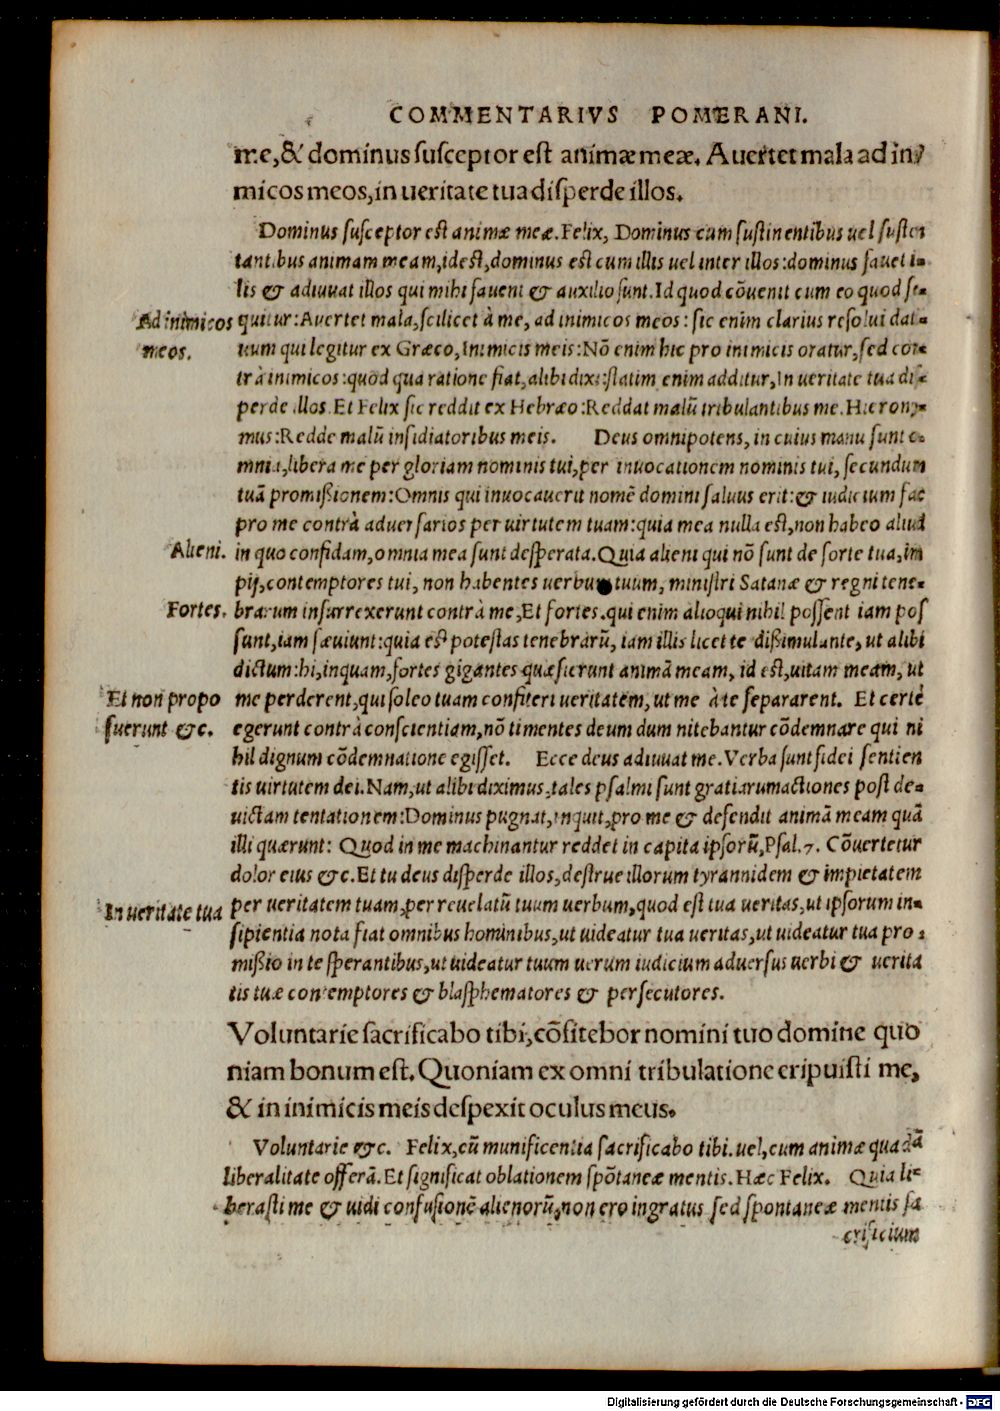 COMMENTARIVS POMERANI.
me,& dominus susceptor est animæ meæ. Auertet mala ad in/
micos meos, in ueritate tua disperde illos.
Dominus susceptor est animæ meæ. Felix, Dominus cum sustinentibus uel susten
tantibus animam meam, id est, dominus est cum illis uel inter illos: dominus fauet il-
lis & adiuuat illos qui mihi fauent & auxilio sunt. Id quod cōuenit cum eo quod se-
Ad inimicos
meos.
quitur: Auertet mala, scilicet à me, ad inimicos meos: sic enim clarius resolui dati-
uum qui legitur ex Græco, Inimicis meis: Nō enim hic pro inimicis oratur, sed con-
trà inimicos: quod qua ratione fiat, alibi dixi: statim enim additur, In ueritate tua dis-
perde illos. Et Felix sic reddit ex Hebræo: Reddat malū tribulantibus me. Hierony-
mus: Redde malū insidiatoribus meis. Deus omnipotens, in cuius manu sunt o-
mnia, libera me per gloriam nominis tui, per inuocationem nominis tui, secundum
tuā promißionem: Omnis qui inuocauerit nomē domini saluus erit: & iudicium fac
pro me contrà aduersarios per uirtutem tuam: quia mea nulla est, non habeo aliud
Alieni.
in quo confidam, omnia mea sunt desperata. Quia alieni qui nō sunt de sorte tua, im
pij, contemptores tui, non habentes uerbum tuum, ministri Satanæ & regni tene-
Fortes.
brarum insurrexerunt contrà me, Et fortes. qui enim alioqui nihil possent iam pos
sunt, iam sæuiunt: quia est potestas tenebrarū, iam illis licet te dißimulante, ut alibi
dictum: hi, inquam, fortes gigantes quæsierunt animā meam, id est, uitam meam, ut
Et non propo
suerunt &c.
me perderent, qui soleo tuam confiteri ueritatem, ut me à te separarent. Et certè
egerunt contrà conscientiam, nō timentes deum dum nitebantur cōdemnare qui ni
hil dignum cōdemnatione egisset. Ecce deus adiuuat me. Verba sunt fidei sentien
tis uirtutem dei. Nam, ut alibi diximus, tales psalmi sunt gratiarumactiones post de-
uictam tentationem: Dominus pugnat, inquit, pro me & defendit animā meam quā
illi quærunt: Quod in me machinantur reddet in capita ipsorū, Psal. 7. Cōuertetur
dolor eius &c. Et tu deus disperde illos, destrue illorum tyrannidem & impietatem
In ueritate tua
per ueritatem tuam, per reuelatū tuum uerbum, quod est tua ueritas, ut ipsorum in-
sipientia nota fiat omnibus hominibus, ut uideatur tua ueritas, ut uideatur tua pro-
mißio in te sperantibus, ut uideatur tuum uerum iudicium aduersus uerbi & uerita
tis tuæ contemptores & blasphematores & persecutores.
Voluntarie sacrificabo tibi, cōfitebor nomini tuo domine quo
niam bonum est. Quoniam ex omni tribulatione eripuisti me,
& in inimicis meis despexit oculus meus.
Voluntarie &c. Felix, cū munificentia sacrificabo tibi. uel, cum animæ quadā
liberalitate offerā. Et significat oblationem spōtaneæ mentis. Hæc Felix. Quia li-
berasti me & uidi confusionē alienorū, non ero ingratus sed spontaneæ mentis sa
crificium
Digitalisierung gefördert durch die Deutsche Forschungsgemeinschaft - DFG